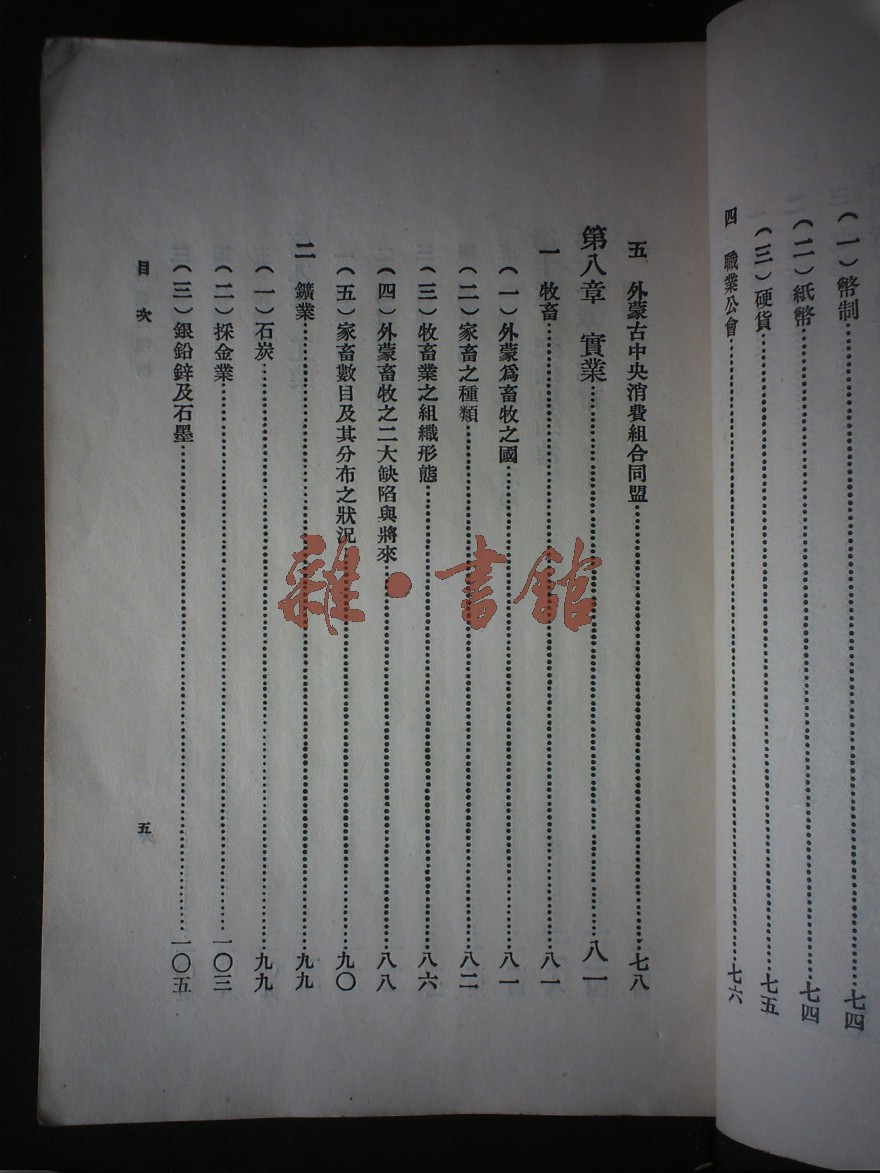 (一)幣制……七四
(二)紙幣……七四
(三)硬貨……七五
四 職業公會……七六
五 外蒙古中央消費組合同盟……七八
第八章 實業……八一
一 牧畜……八一
(一)外蒙爲畜牧之國……八一
(二)家畜之種類……八二
(三)牧畜業之組織形態……八六
(四)外蒙畜牧之二大缺陷與將來……八八
(五)家畜數目及其分布之狀況……九〇
二 鑛業……九九
(一)石炭……九九
(二)採金業……一〇三
(三)銀鉛鋅及石墨……一〇五
目次
五
雜·書館